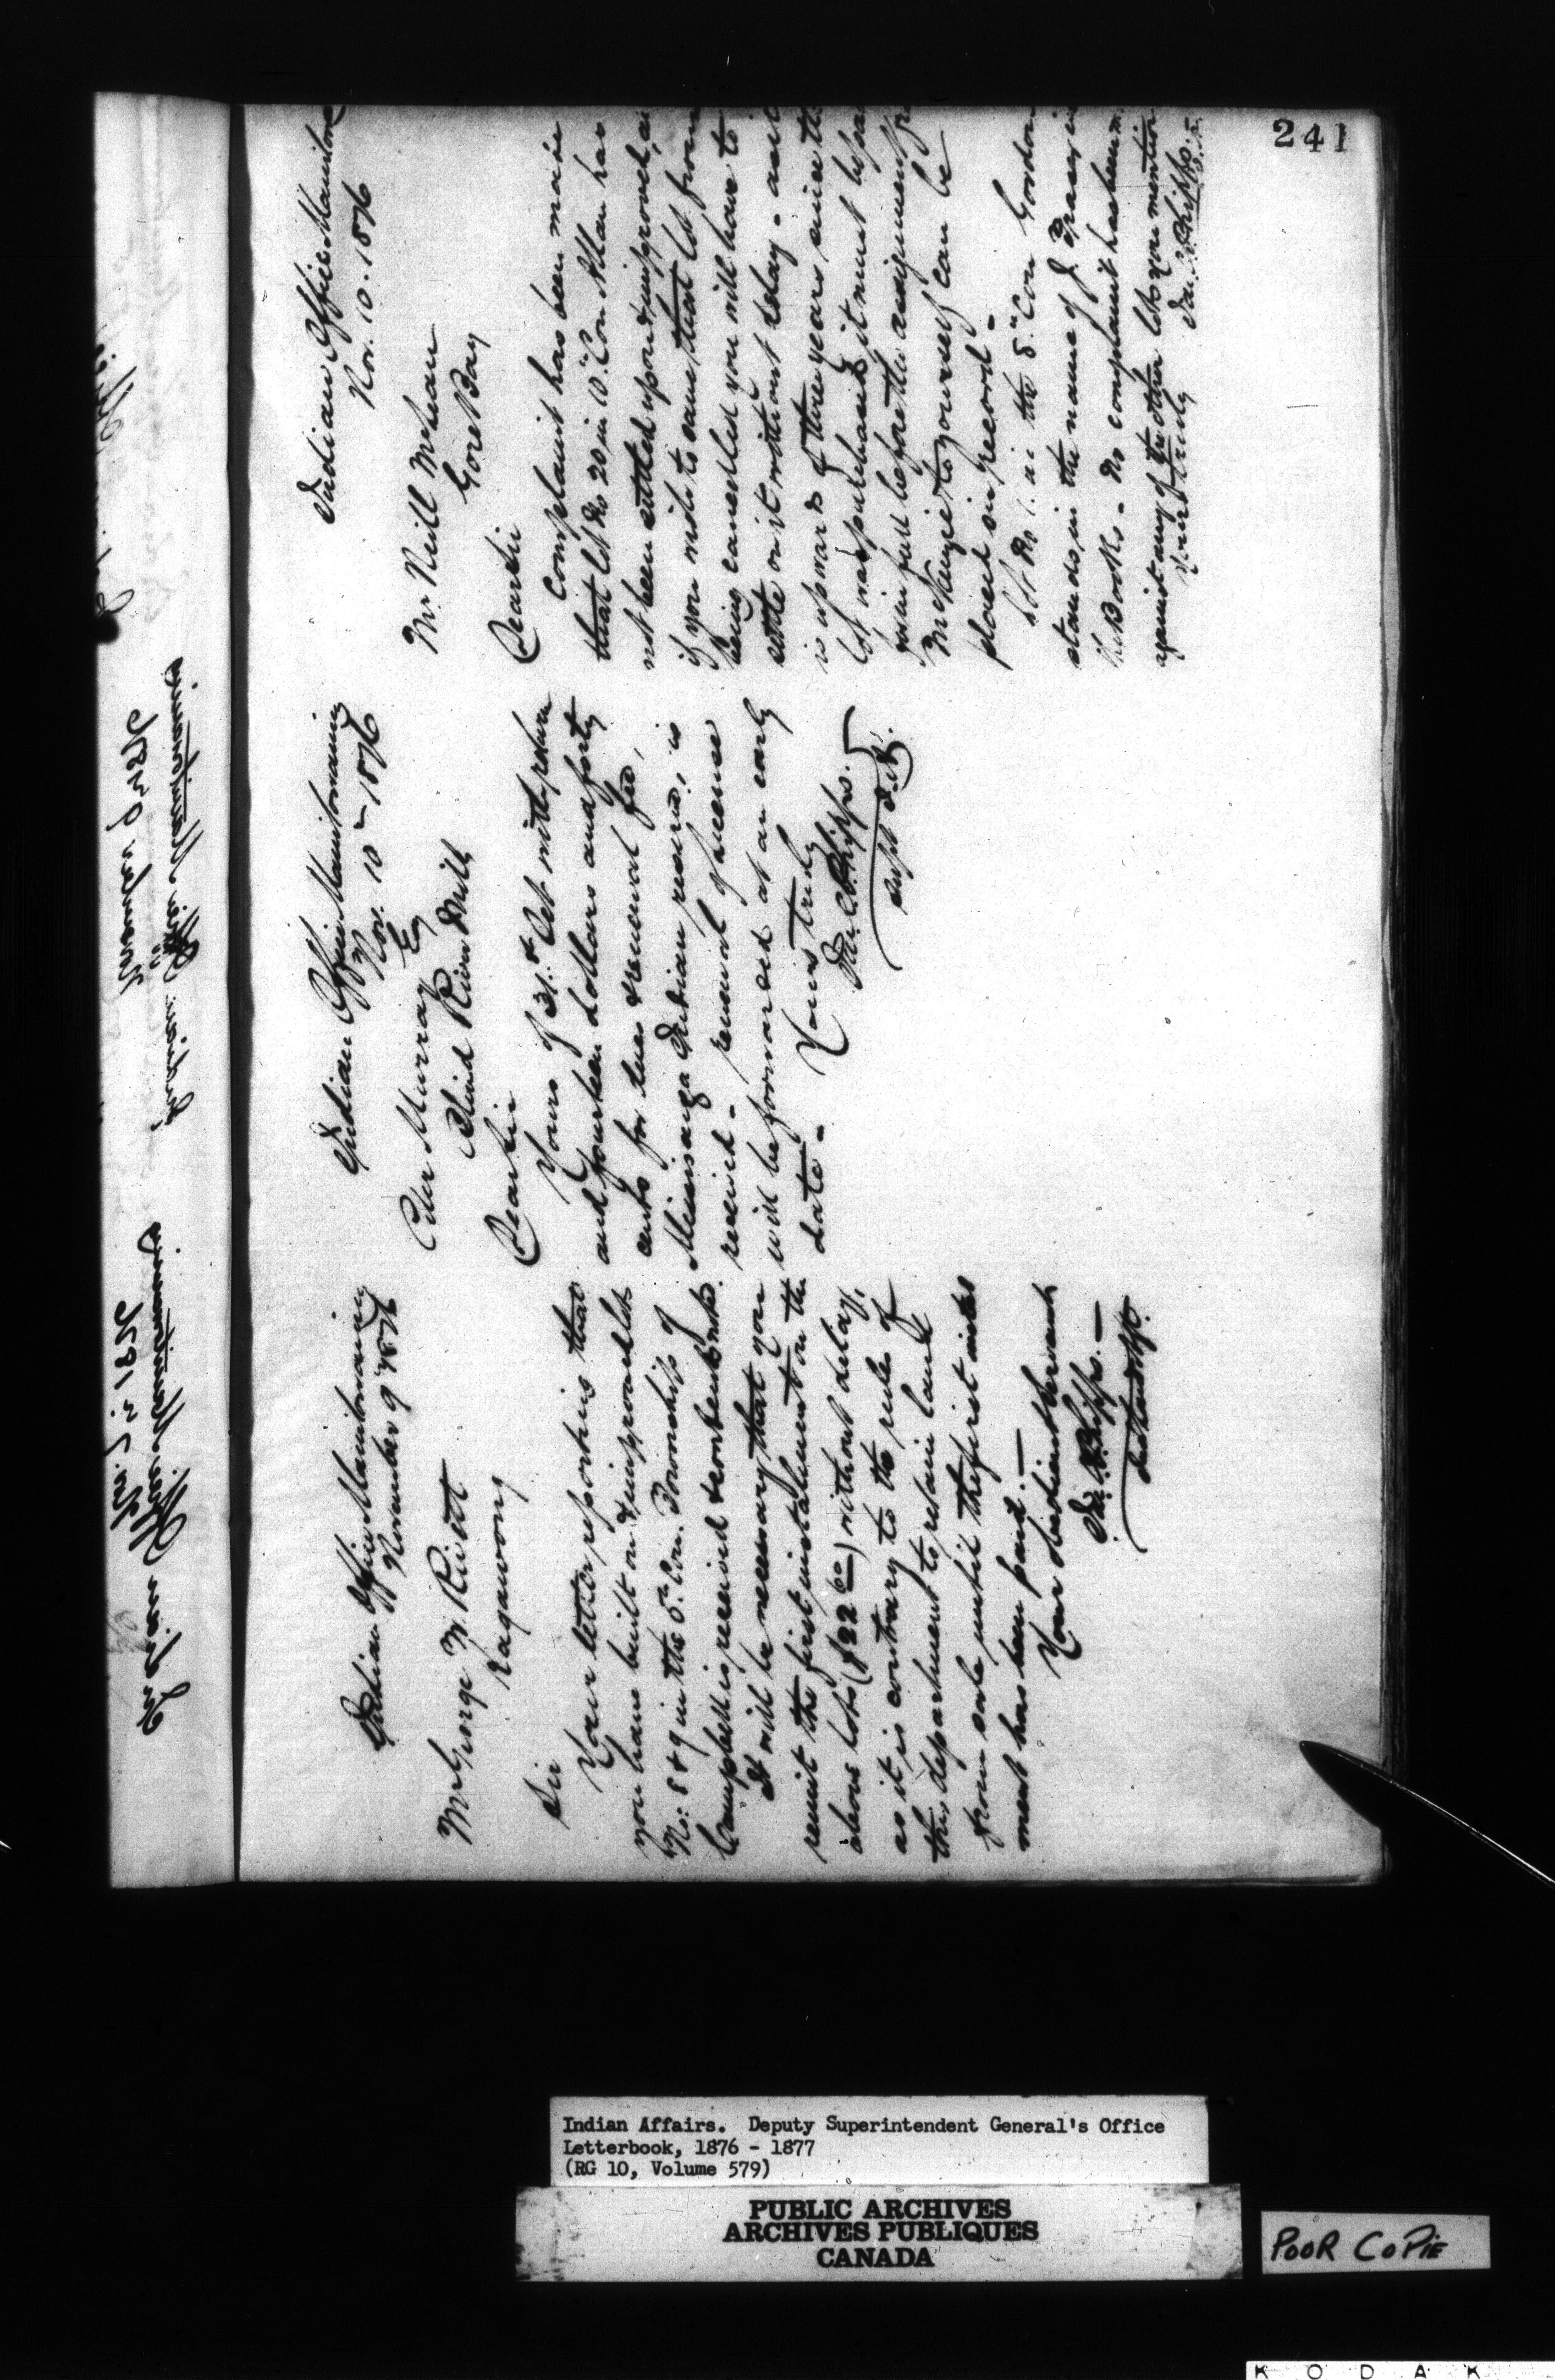 241
Indian Office Manitowaning
November 9 1876
Mr George W. Rivett
Kagawong
Sir
Your letter reporting that
you have built on & improved lots
No: 8 & 9 in the 5th Con. Township of
Campbell is received & contents noted.
It will be necessary that you
remit the first instalment on the
above lots ($22 60) without delay,
as it is contrary to the rules of
this department to retain lands
from sale until the first instal
ment has been paid. —
Your obedient servant
Jas. C. Phipps. —
Indian Office Manitowaning
Nov. 10 - 1876
Peter Murray Esq
Blind River Mills
Dear Sir
Yours of 31st Oct with return
and fourteen dollars and forty
cents for dues & renewal fee,
Mississauga Indian reserve, is
received - renewal of license
will be forwarded at an early
date -
Yours truly
Jas. C. Phipps.
Supt
Indian Office Manitow
Nov. 10. 1876
Mr Neill McLean
Gore Bay
Dear Sir
Complaint has been made
that lot No 20, in 10" Con Allan has
not been settled upon & improved, a
if you wish to save that lot from
being cancelled you will have to
settle on it without delay - as it
is upwards of three years since the
lot was purchased it must be paid
for in full before the assignment fr
McKenzie to yourself can be
placed on record -
Lot No 1. in the 8" Con Gordon
stands in the name of J
the Books - No complaint has been m
against any of the other lots you mention
Yours truly
Jas. C. Phipps.
Nov. 7 1876
Indian Office Manitowaning
November 9 1876
Indian Office Manitowaning
Indian Affairs. Deputy Superintendent General's Office
Letterbook, 1876 - 1877
(RG 10, Volume 579)
PUBLIC ARCHIVES
ARCHIVES PUBLIQUES
CANADA
POOR COPIE
KODAK